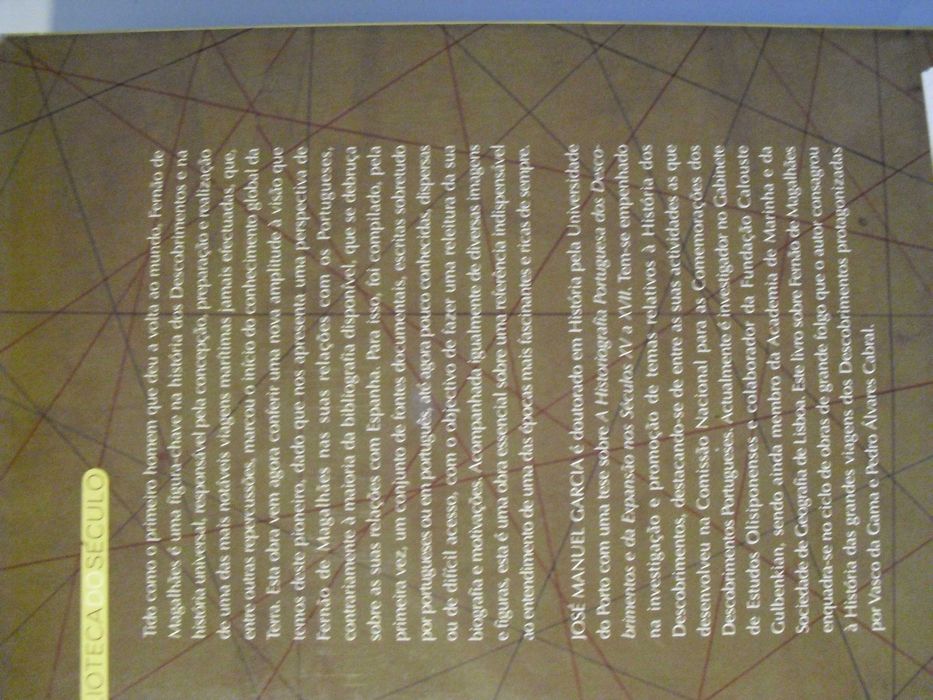 IOTECADOSÉCULO
Tido como o primeiro homem que deu a volta ao mundo, Fernão de
Magalhães é uma figura-chave na história dos Descobrimentos e na
história universal, responsável pela concepção, preparação e realização
de uma das mais notáveis viagens marítimas jamais efectuadas, que,
entre outras repercussões, marcou o início do conhecimento global da
Terra. Esta obra vem agora conferir uma nova amplitude à visão que
temos deste pioneiro, dado que nos apresenta uma perspectiva de
Fernão de Magalhães nas suas relações com os Portugueses,
contrariamente à maioria da bibliografia disponível, que se debruça
sobre as suas relações com Espanha. Para isso, foi compilado, pela
primeira vez, um conjunto de fontes documentais, escritas sobretudo
por portugueses ou em português, até agora pouco conhecidas, dispersas
ou de difícil acesso, com o objectivo de fazer uma releitura da sua
biografia e motivações. Acompanhada igualmente de diversas imagens
e figuras, esta é uma obra essencial sobre uma referência indispensável
ao entendimento de uma das épocas mais fascinantes e ricas de sempre.
JOSÉ MANUEL GARCIA é doutorado em História pela Universidade
do Porto com uma tese sobre A Historiografia Portuguesa dos Desco-
brimentos e da Expansão nos Séculos XV a XVII. Tem-se empenhado
na investigação e promoção de temas relativos à História dos
Descobrimentos, destacando-se de entre as suas actividades as que
desenvolveu na Comissão Nacional para as Comemorações dos
Descobrimentos Portugueses. Actualmente é investigador no Gabinete
de Estudos Olisiponenses e colaborador da Fundação Calouste
Gulbenkian, sendo ainda membro da Academia de Marinha e da
Sociedade de Geografia de Lisboa. Este livro sobre Fernão de Magalhães
enquadra-se no ciclo de obras de grande fôlego que o autor consagrou
à História das grandes viagens dos Descobrimentos protagonizadas
por Vasco da Gama e Pedro Álvares Cabral.